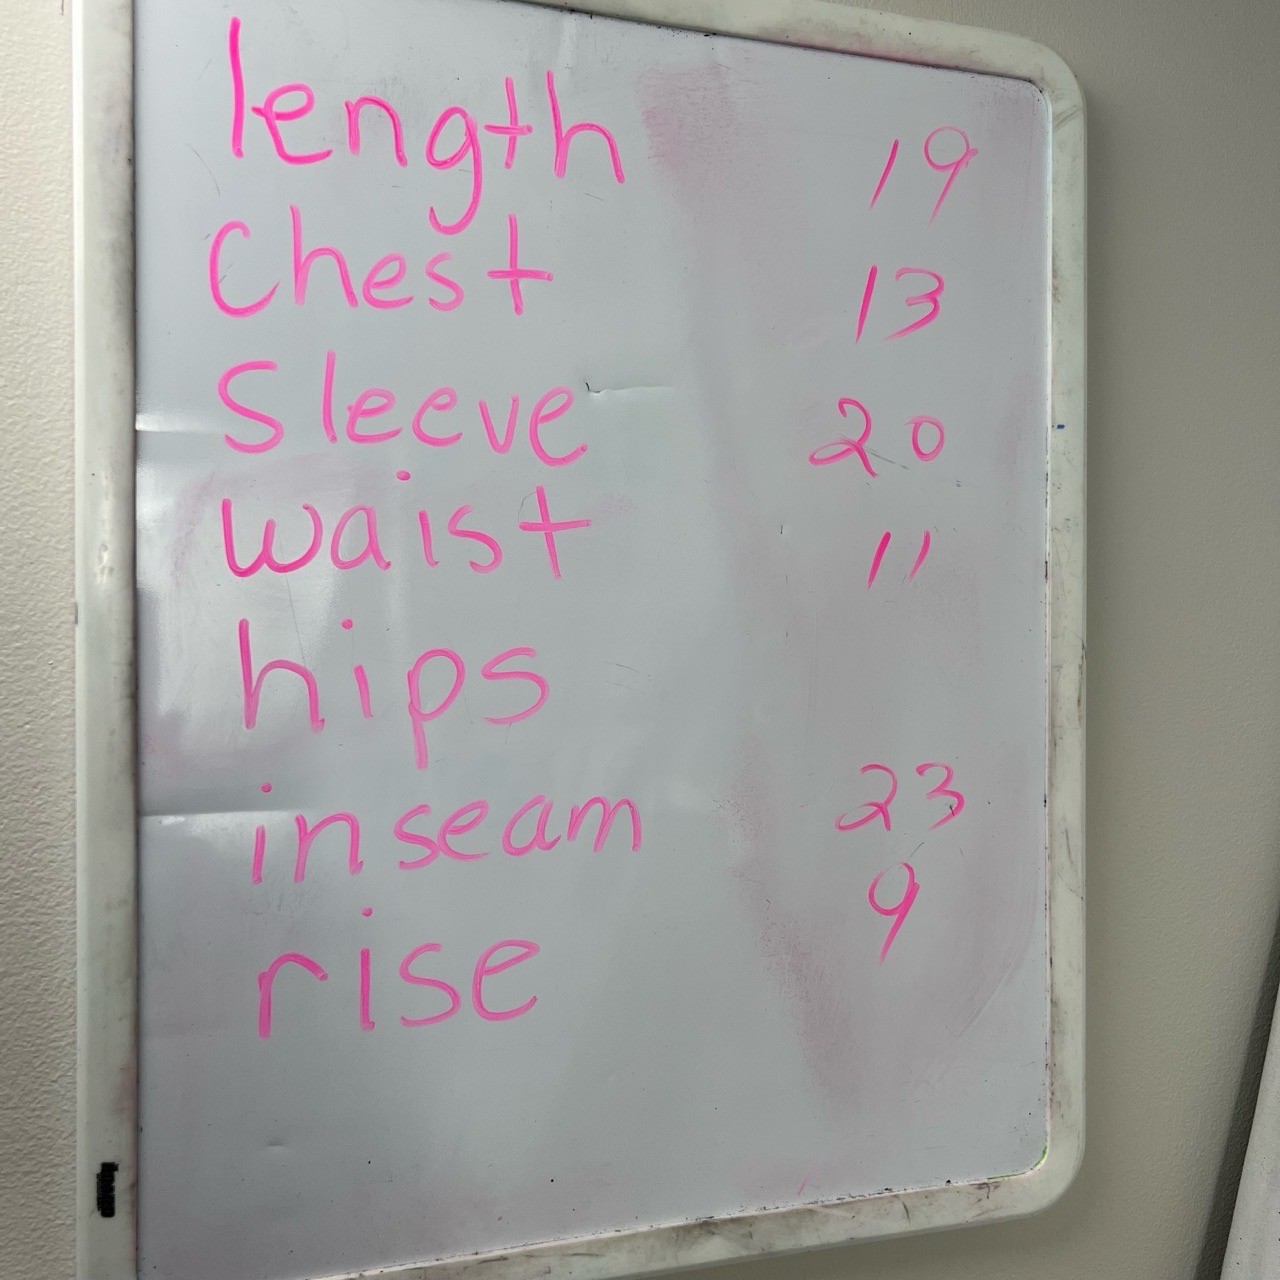 length 19
Chest 13
Sleeve 20
waist 11
hips
inseam 23
rise 9